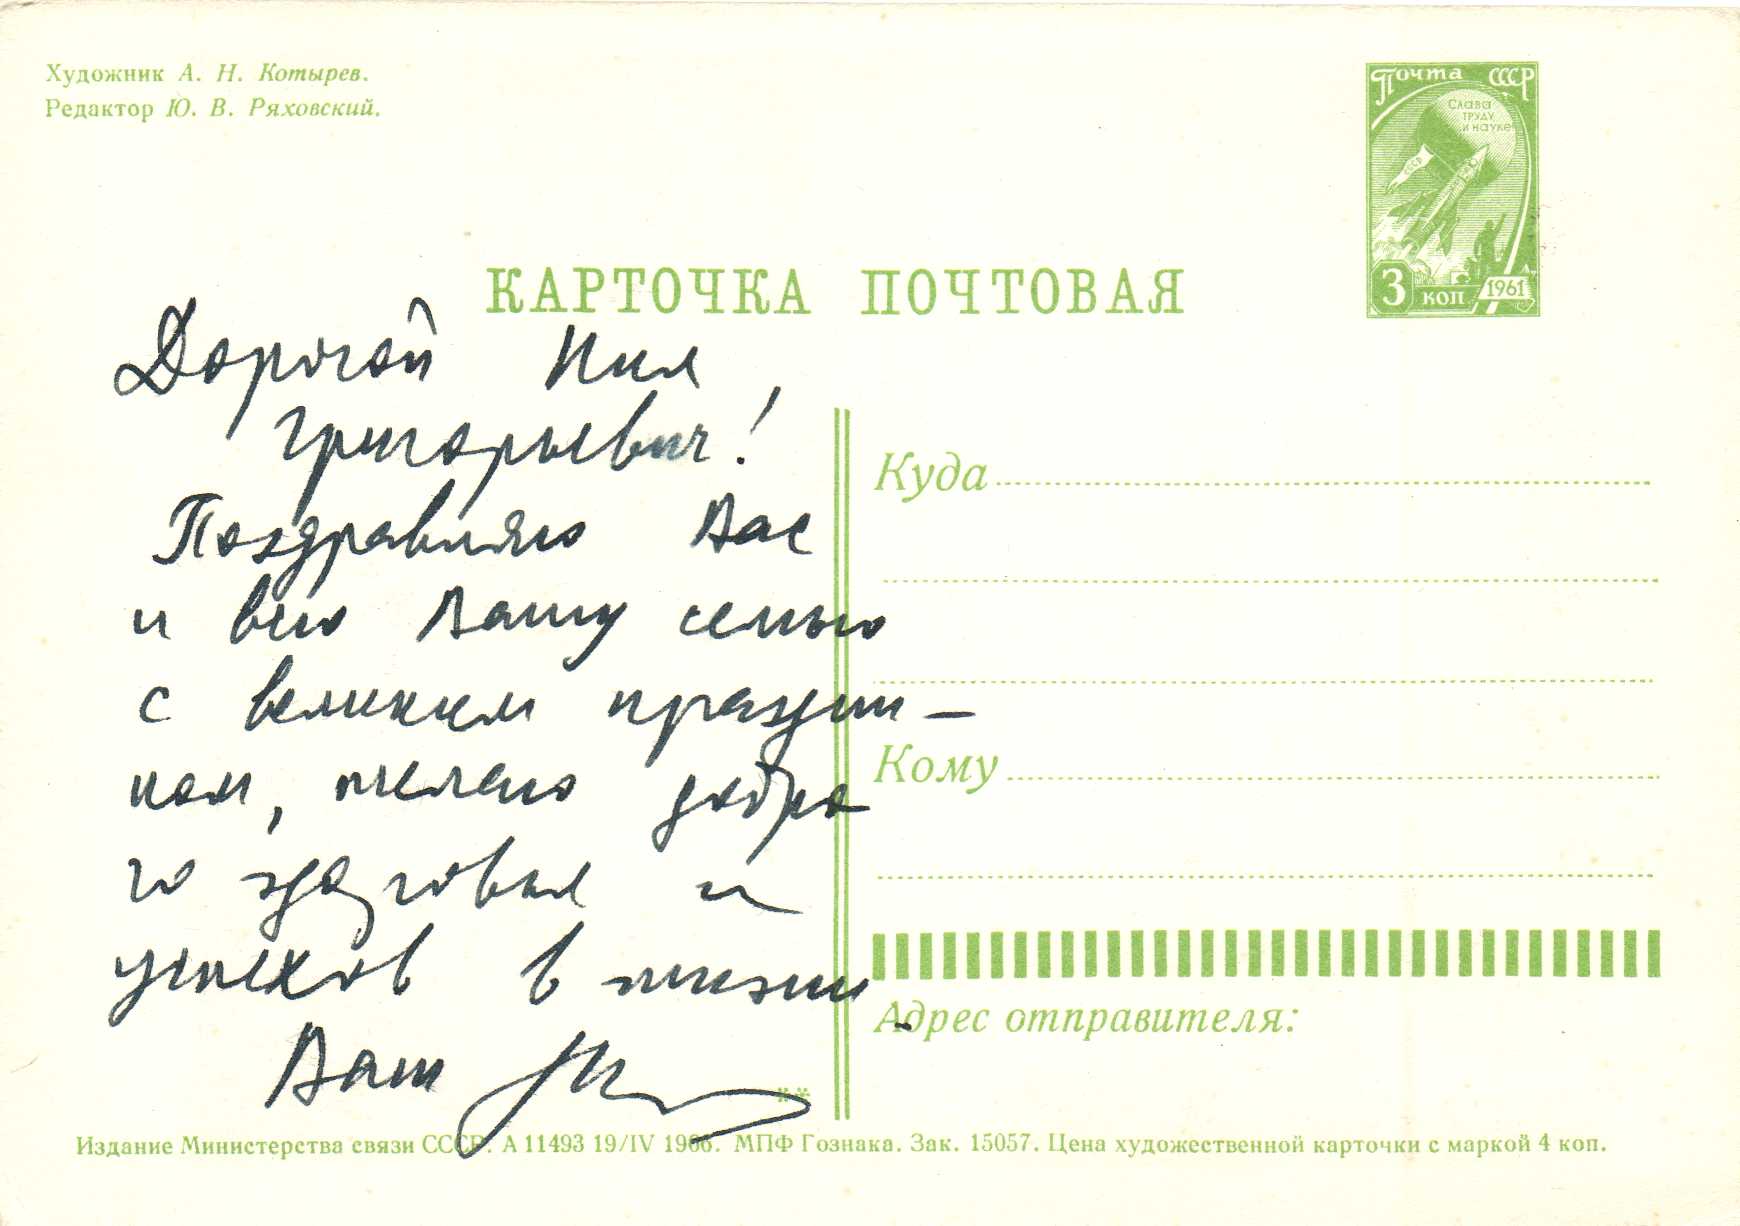 Художник А. Н. Котырев.
Редактор Ю. В. Ряховский.
Почта СССР
Слава
труду
и науке
СССР
3 коп 1961
КАРТОЧКА ПОЧТОВАЯ
Дорогой Нил
Григорьевич!
Поздравляю Вас
и всю Вашу семью
с великим праздни-
ком, желаю добро
го здоровья и
успехов в жизни.
Ваш
Куда
Кому
Адрес отправителя:
**
Издание Министерства связи СССР. А 11493 19/IV 1966. МПФ Гознака. Зак. 15057. Цена художественной карточки с маркой 4 коп.